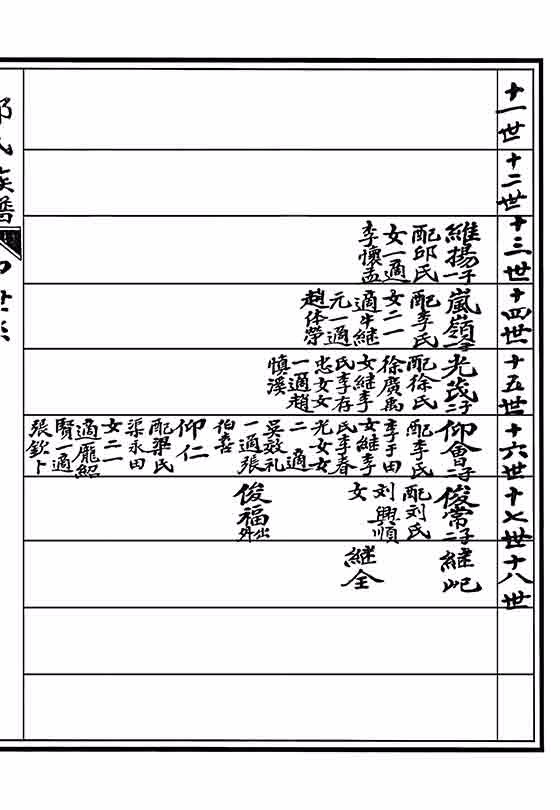 十一世
十二世
十三世
十四世
十五世
十六世
十七世
十八世
維揚一子
配邱氏
女一適
李懷孟
嵐嶺一子
配李氏
女二一
適牛継
元一適
趙体榮
光茂二子
配徐氏
徐廣禹
女継李
氏李存
忠女女
一適趙
慎溪
仰會二子
配李氏
李于田
女継李
氏李春
光女女
二適
吴效礼
一適張
伯喜
仰仁
配渠氏
渠永田
女二一
適龐紹
賢一適
張欽卜
俊常二子
配刘氏
刘興順
女
俊福
外出
継屺
継全
氏族譜
世系